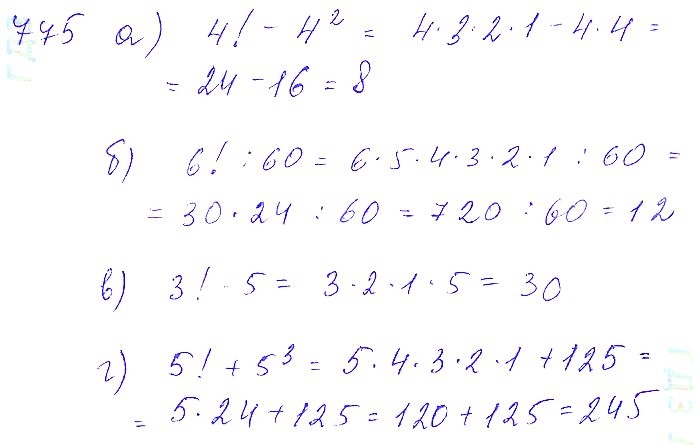 775 а) 4! - 4² = 4·3·2·1 - 4·4 =
= 24 - 16 = 8
б) 6! : 60 = 6·5·4·3·2·1 : 60 =
= 30·24 : 60 = 720 : 60 = 12
в) 3! · 5 = 3·2·1·5 = 30
г) 5! + 5³ = 5·4·3·2·1 + 125 =
= 5·24 + 125 = 120 + 125 = 245